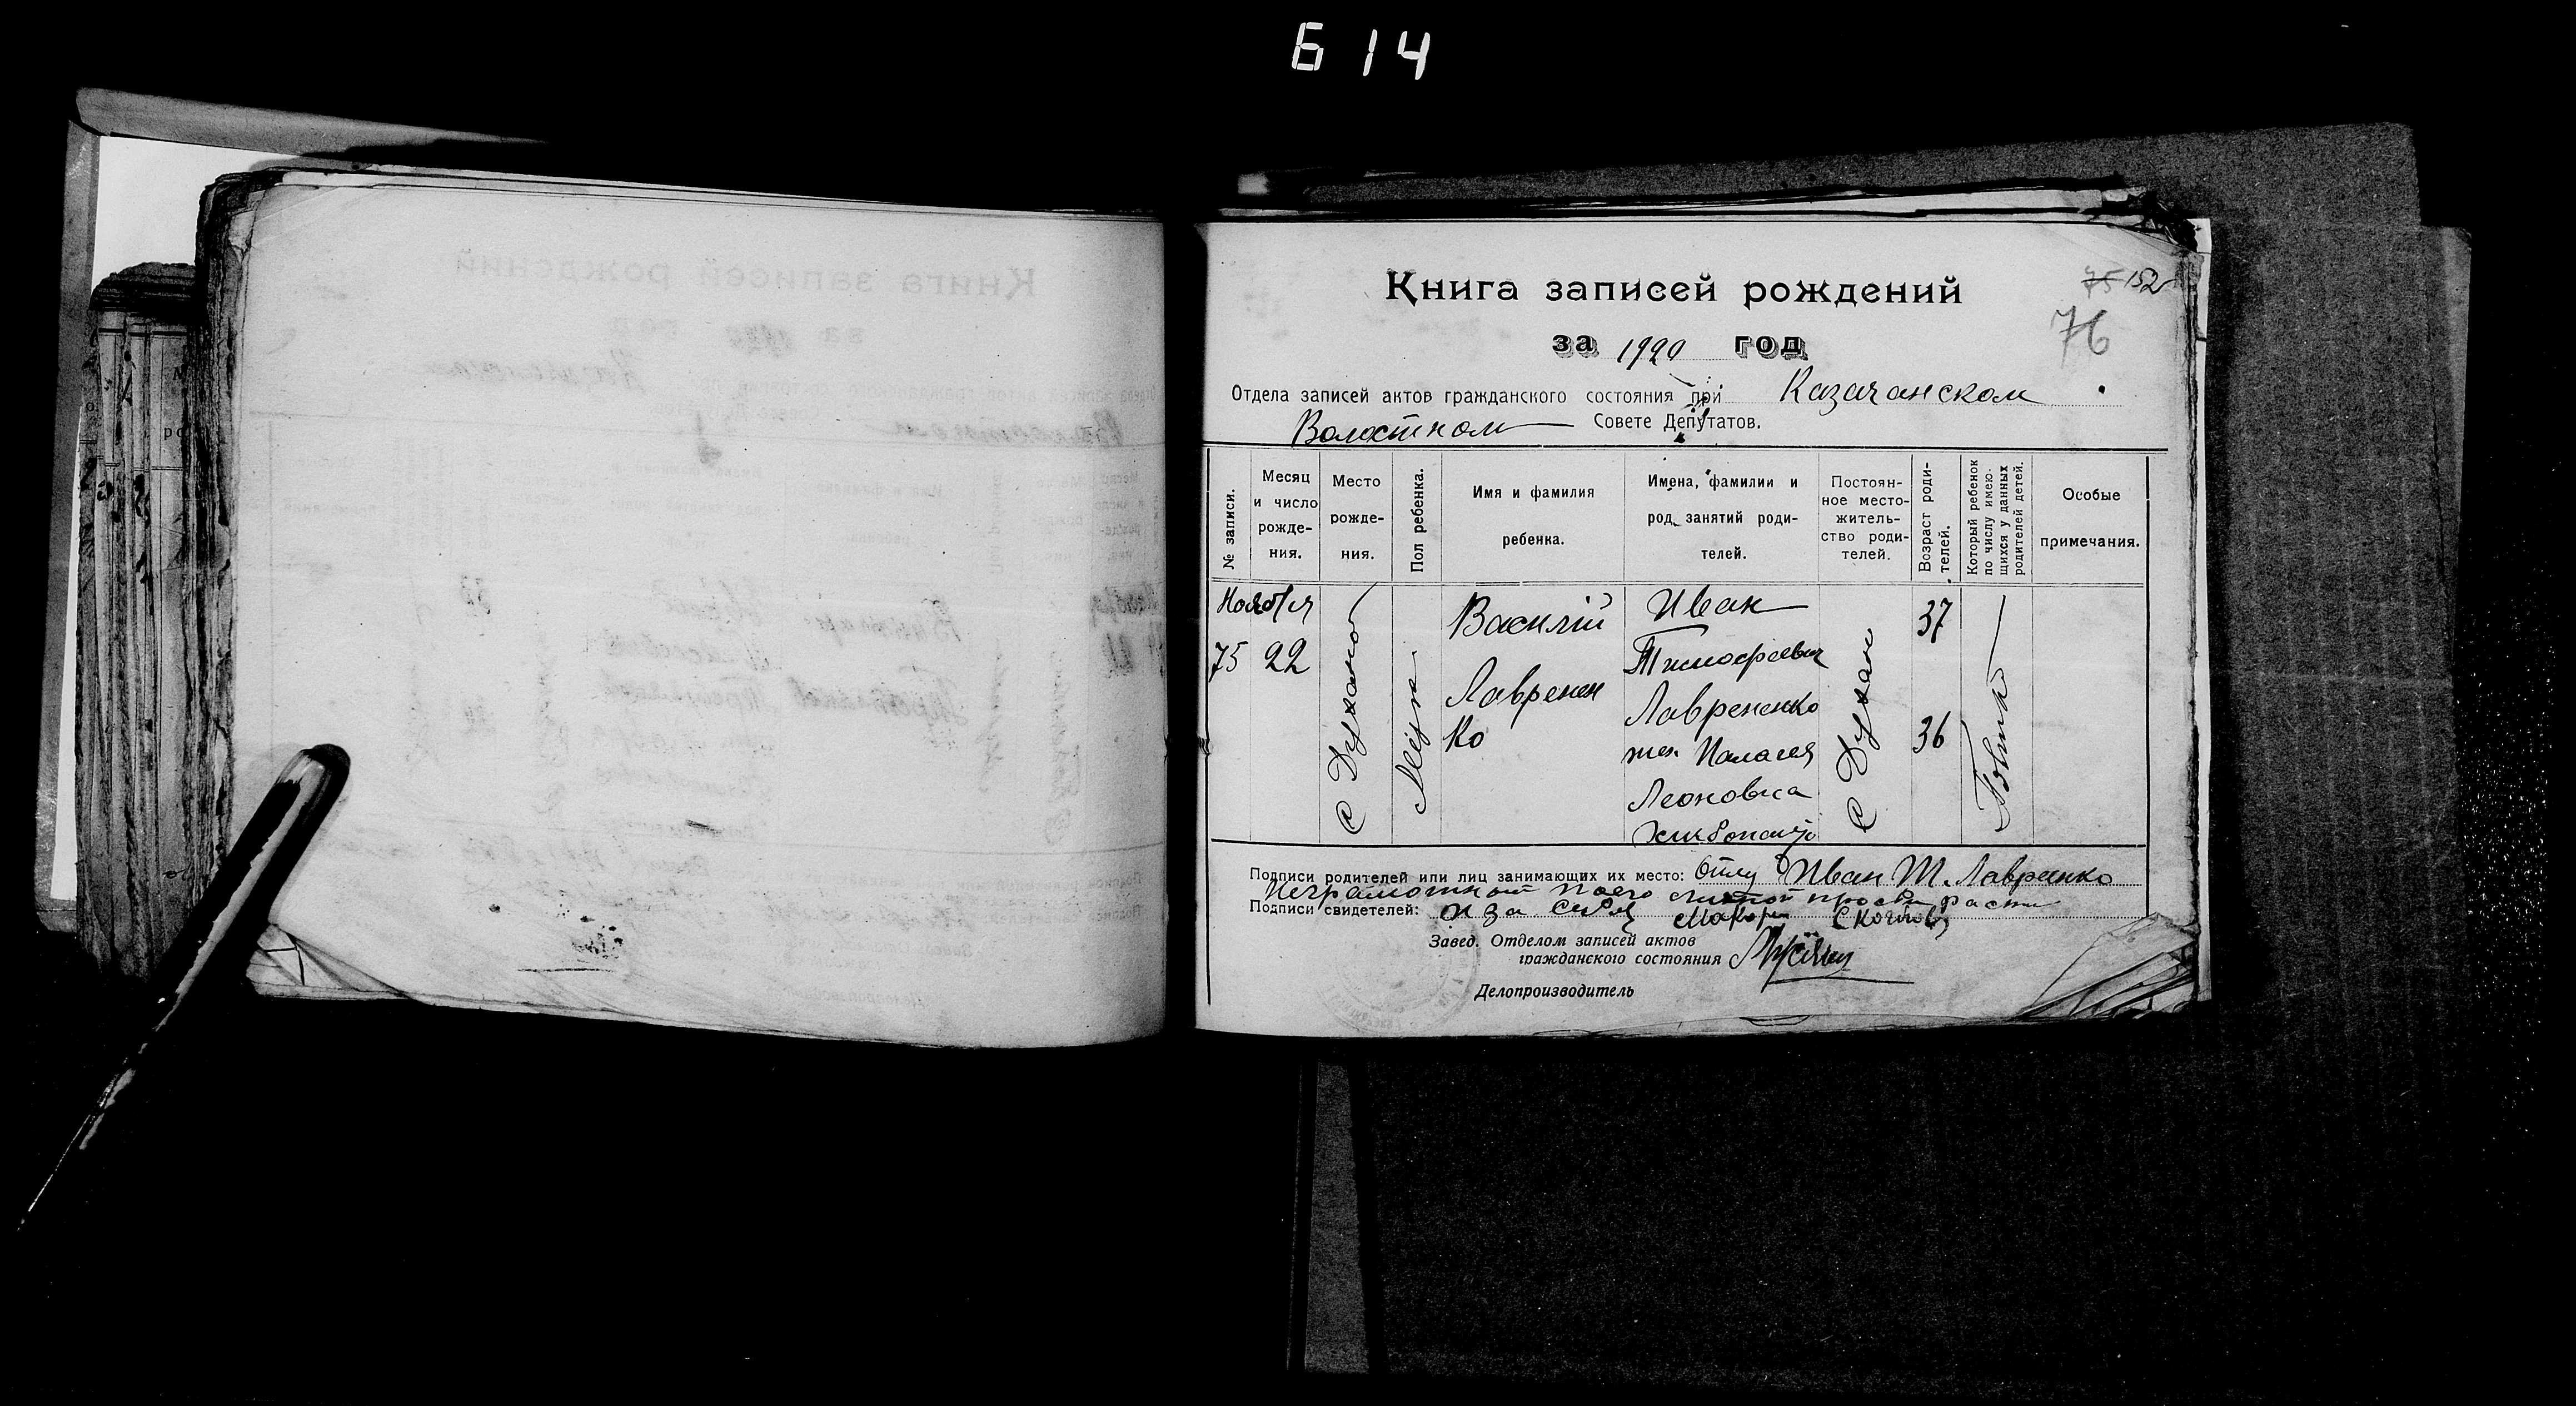 614
Книга записей рождений
75 152
76
за 1920 год
Отдела записей актов гражданского состояния при Казачанском
Волостном Совете Депутатов.
№ записи.
Месяц и число рожде- ния.
Место рожде- ния.
Пол ребенка.
Имя и фамилия ребенка.
Имена, фамилии и род занятий роди- телей.
Постоян- ное место- житель- ство роди- телей.
Возраст роди- телей.
Который ребенок по числу имею- щихся у данных родителей детей.
Особые примечания.
Ноября
75 22
с Духано
Муж
Василій
Лавренен
ко
Иван
Тимофеевич
Лаврененко
жен Палагея
Леоновна
с Духан
37
36
Подписи родителей или лиц занимающих их место: Иван Т. Лавренко
Неграмотный по его личной просьби
Подписи свидетелей: и за себя Макорей
Завед. Отделом записей актов
гражданского состояния
Делопроизводитель